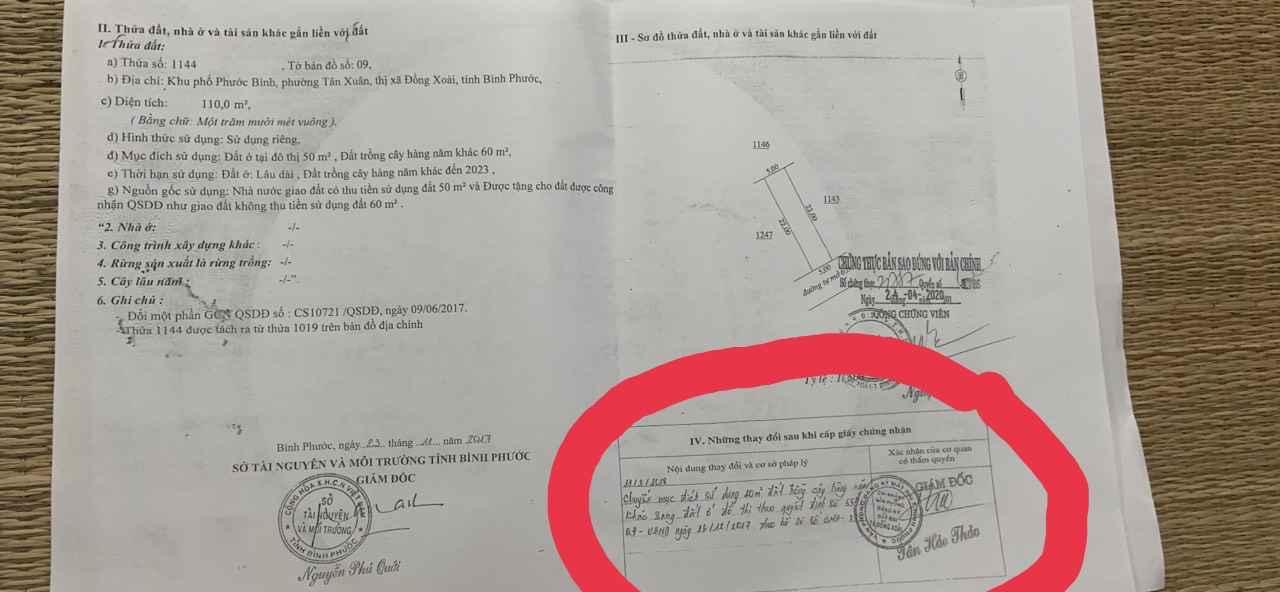 II. Thửa đất, nhà ở và tài sản khác gắn liền với đất
1. Thửa đất:
a) Thửa số: 1144 , Tờ bản đồ số: 09,
b) Địa chỉ: Khu phố Phước Bình, phường Tân Xuân, thị xã Đồng Xoài, tỉnh Bình Phước,
c) Diện tích: 110,0 m²,
( Bằng chữ: Một trăm mười mét vuông ),
d) Hình thức sử dụng: Sử dụng riêng,
đ) Mục đích sử dụng: Đất ở tại đô thị 50 m² , Đất trồng cây hàng năm khác 60 m²,
e) Thời hạn sử dụng: Đất ở: Lâu dài , Đất trồng cây hàng năm khác đến 2023 ,
g) Nguồn gốc sử dụng: Nhà nước giao đất có thu tiền sử dụng đất 50 m² và Được tặng cho đất được công
nhận QSDĐ như giao đất không thu tiền sử dụng đất 60 m² .
“2. Nhà ở: -/-
3. Công trình xây dựng khác : -/-
4. Rừng sản xuất là rừng trồng: -/-
5. Cây lâu năm : -/-”
6. Ghi chú :
Đổi một phần GCN QSDĐ số : CS10721 /QSDĐ, ngày 09/06/2017.
Thửa 1144 được tách ra từ thửa 1019 trên bản đồ địa chính
Bình Phước, ngày 23 tháng 11 năm 2017
SỞ TÀI NGUYÊN VÀ MÔI TRƯỜNG TỈNH BÌNH PHƯỚC
GIÁM ĐỐC
CỘNG HÒA X.H.C.N VIỆT NAM
SỞ
TÀI NGUYÊN
VÀ MÔI TRƯỜNG
TỈNH BÌNH PHƯỚC
Nguyễn Phú Quới
III - Sơ đồ thửa đất, nhà ở và tài sản khác gắn liền với đất
1146
5.00
1143
22.00
22.00
1247
5.00
đường bê
CHỨNG THỰC BẢN SAO ĐÚNG VỚI BẢN CHÍNH
Số chứng thực Quyển số
Ngày 24 -04- 2020
CÔNG CHỨNG VIÊN
Tỷ lệ :
IV. Những thay đổi sau khi cấp giấy chứng nhận
Nội dung thay đổi và cơ sở pháp lý
Xác nhận của cơ quan
có thẩm quyền
Chuyển mục đích sử dụng đất trồng cây hàng năm
khác sang đất ở đô thị theo quyết định số
ngày 13/12/2017 theo hồ sơ số
GIÁM ĐỐC
Tân Hảo Thảo